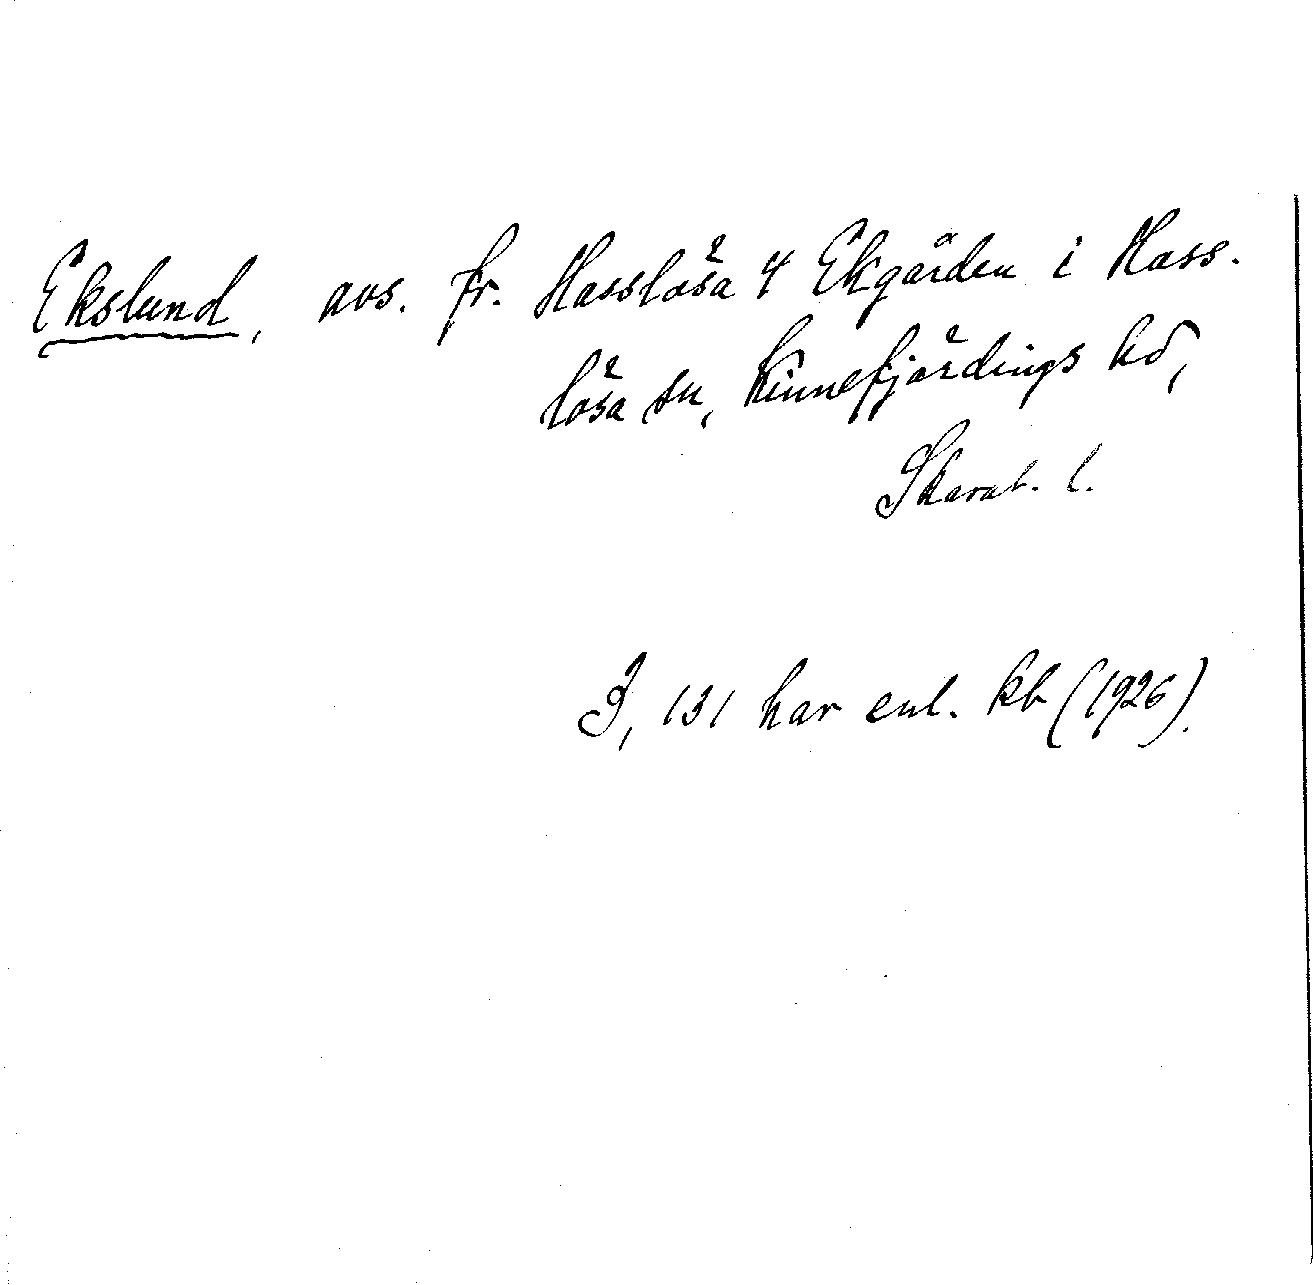 Ekslund, avs. fr. Hasslösa 4 Ekgården i Hass-
lösa sn, Kinnefjärdings hd,
Skarab. l.
I, 131 har enl. kb (1926).